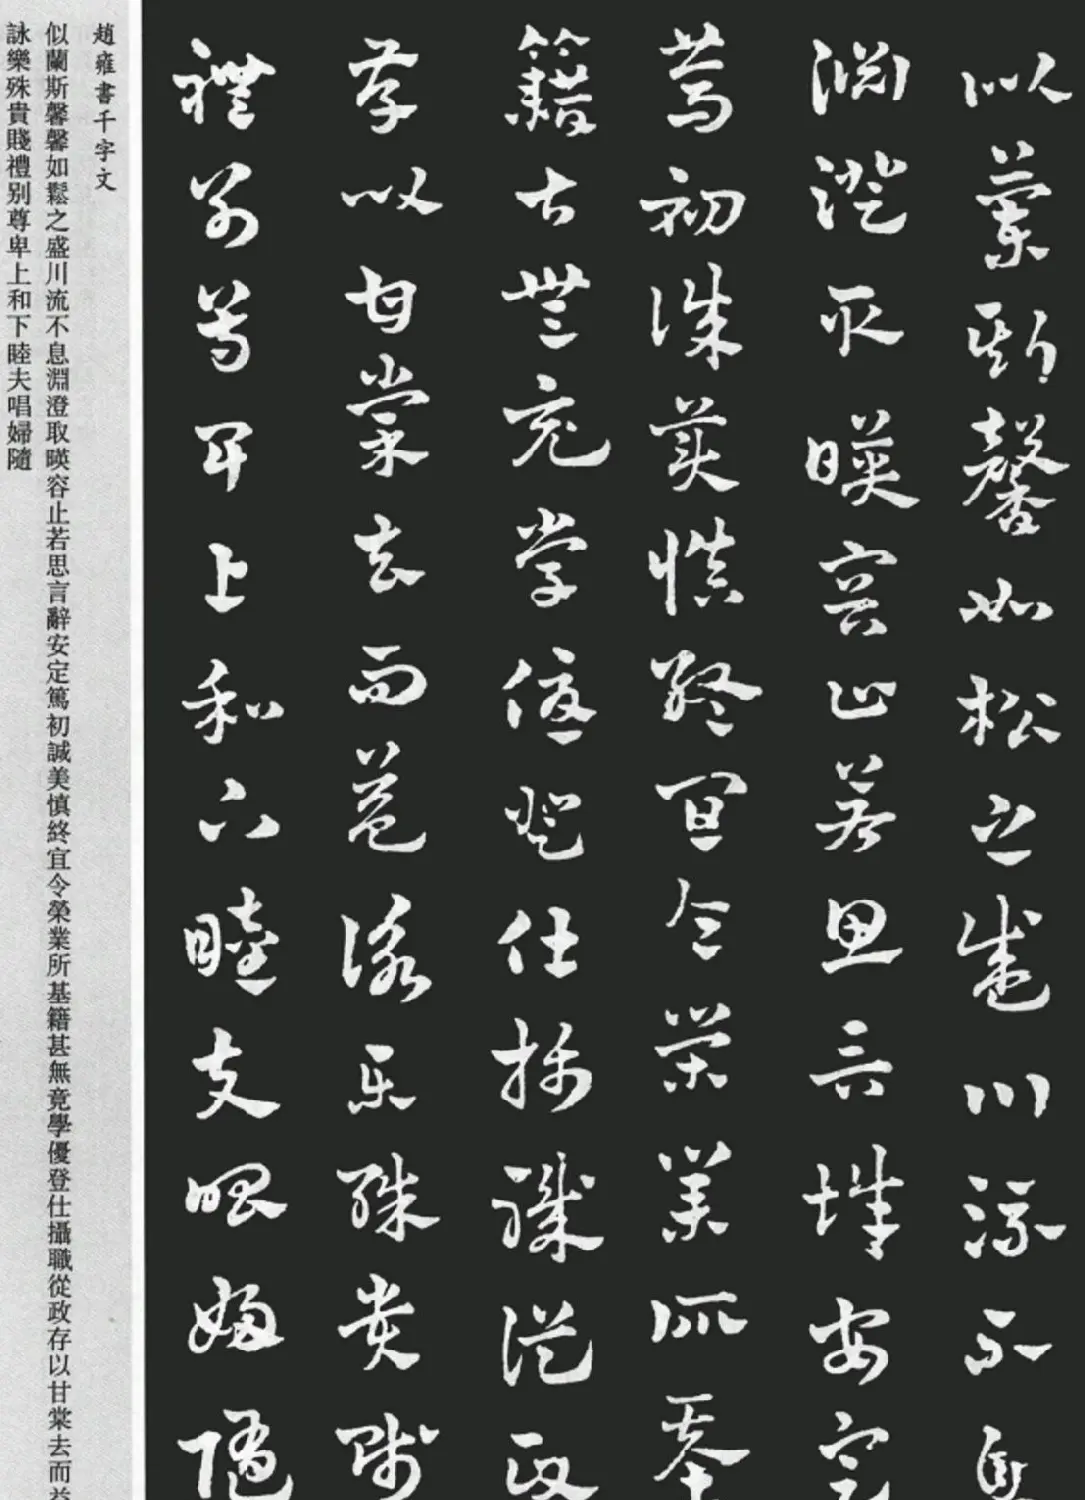 似蘭斯馨如松之盛川流不息
淵澄取暎容止若思言辭安定
篤初誠美慎終宜令榮業所基
籍甚無竟學優登仕攝職從政
存以甘棠去而益詠樂殊貴賤
禮別尊卑上和下睦夫唱婦隨
趙雍書千字文
似蘭斯馨馨如鬆之盛川流不息淵澄取暎容止若思言辭安定篤初誠美慎終宜令榮業所基籍甚無竟學優登仕攝職從政存以甘棠去而益
詠樂殊貴賤禮别尊卑上和下睦夫唱婦隨